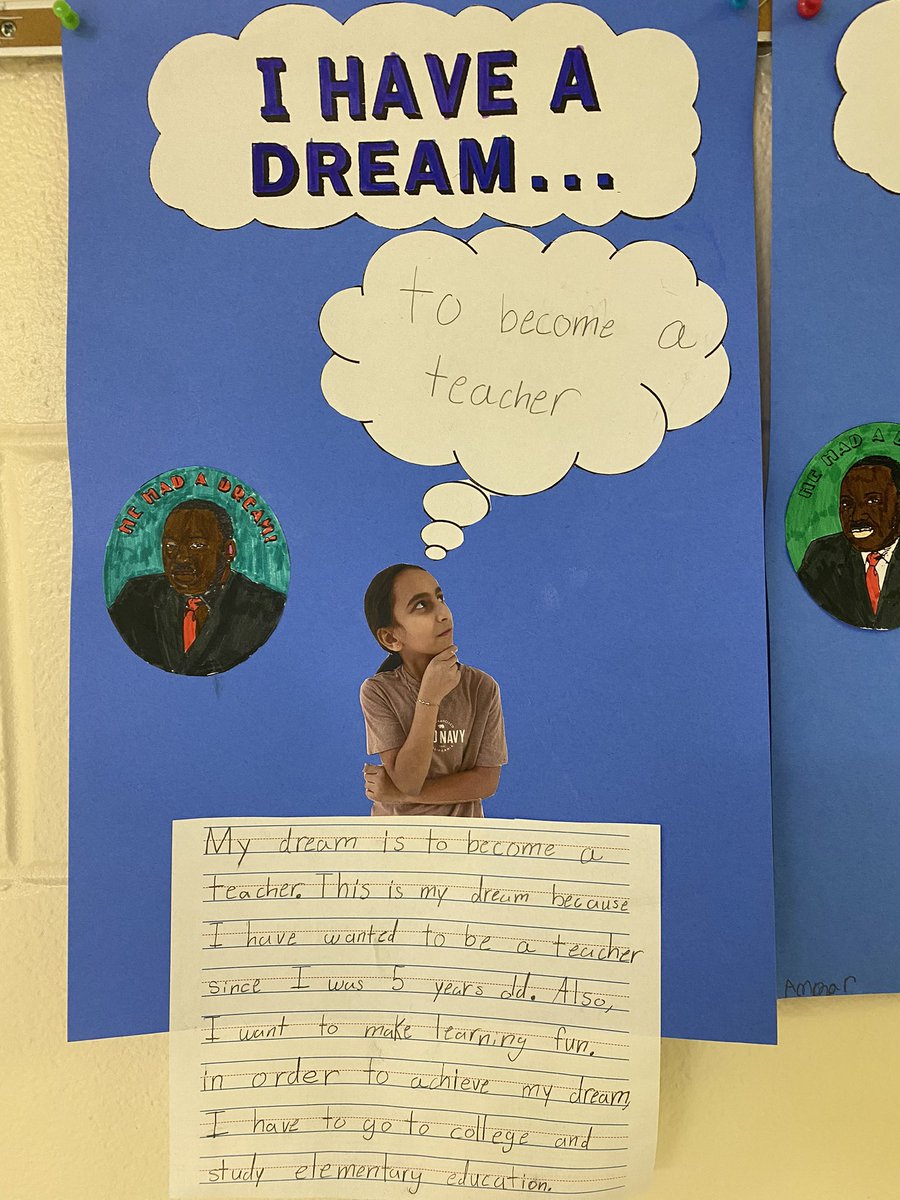 I HAVE A
DREAM...
to become a
teacher
HE HAD A DREAM!
HE HAD A
NAVY
My dream is to become a
teacher. This is my dream because
I have wanted to be a teacher
since I was 5 years old. Also,
I want to make learning fun.
in order to achieve my dream,
I have to go to college and
study elementary education.
Ammar